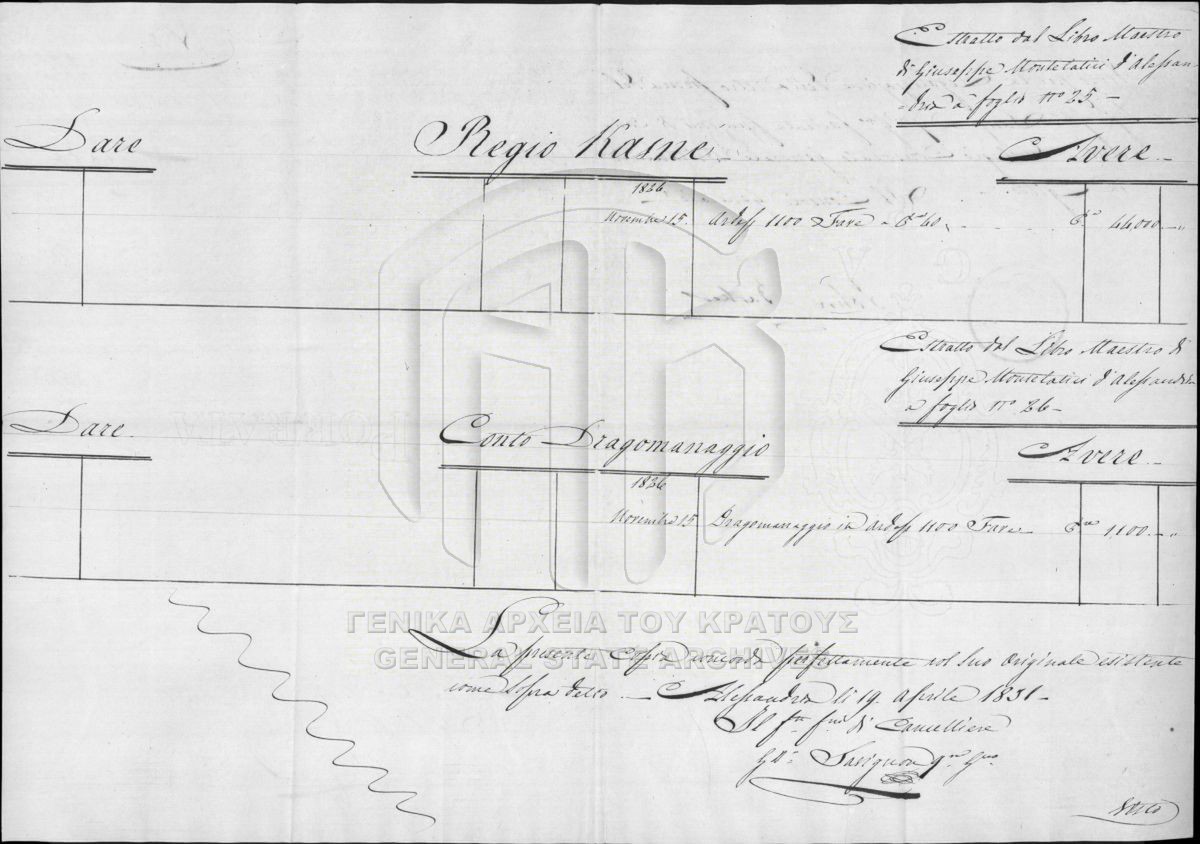 Estratto dal Libro Maestro
di Giuseppe Montelatici d'Alessan-
-dria a foglio n° 25 -
Dare
Regio Kasne
Avere -
1826
Novembre 15. Ardeb 1100 Fave a 40, 44,000 -
Estratto dal Libro Maestro di
Giuseppe Montelatici d'Alessandria
a foglio n° 26 -
Dare
Conto Dragomanaggio
Avere -
1826
Novembre 15 Dragomanaggio in ardeb 1100 Fave 1,100. -
ΓΕΝΙΚΑ ΑΡΧΕΙΑ ΤΟΥ ΚΡΑΤΟΥΣ
GENERAL STATE ARCHIVES
La presente Copia concorda perfettamente col suo Originale esistente
come sopra detto - Alessandria li 19. Aprile 1831 -
Il di Cancelliere